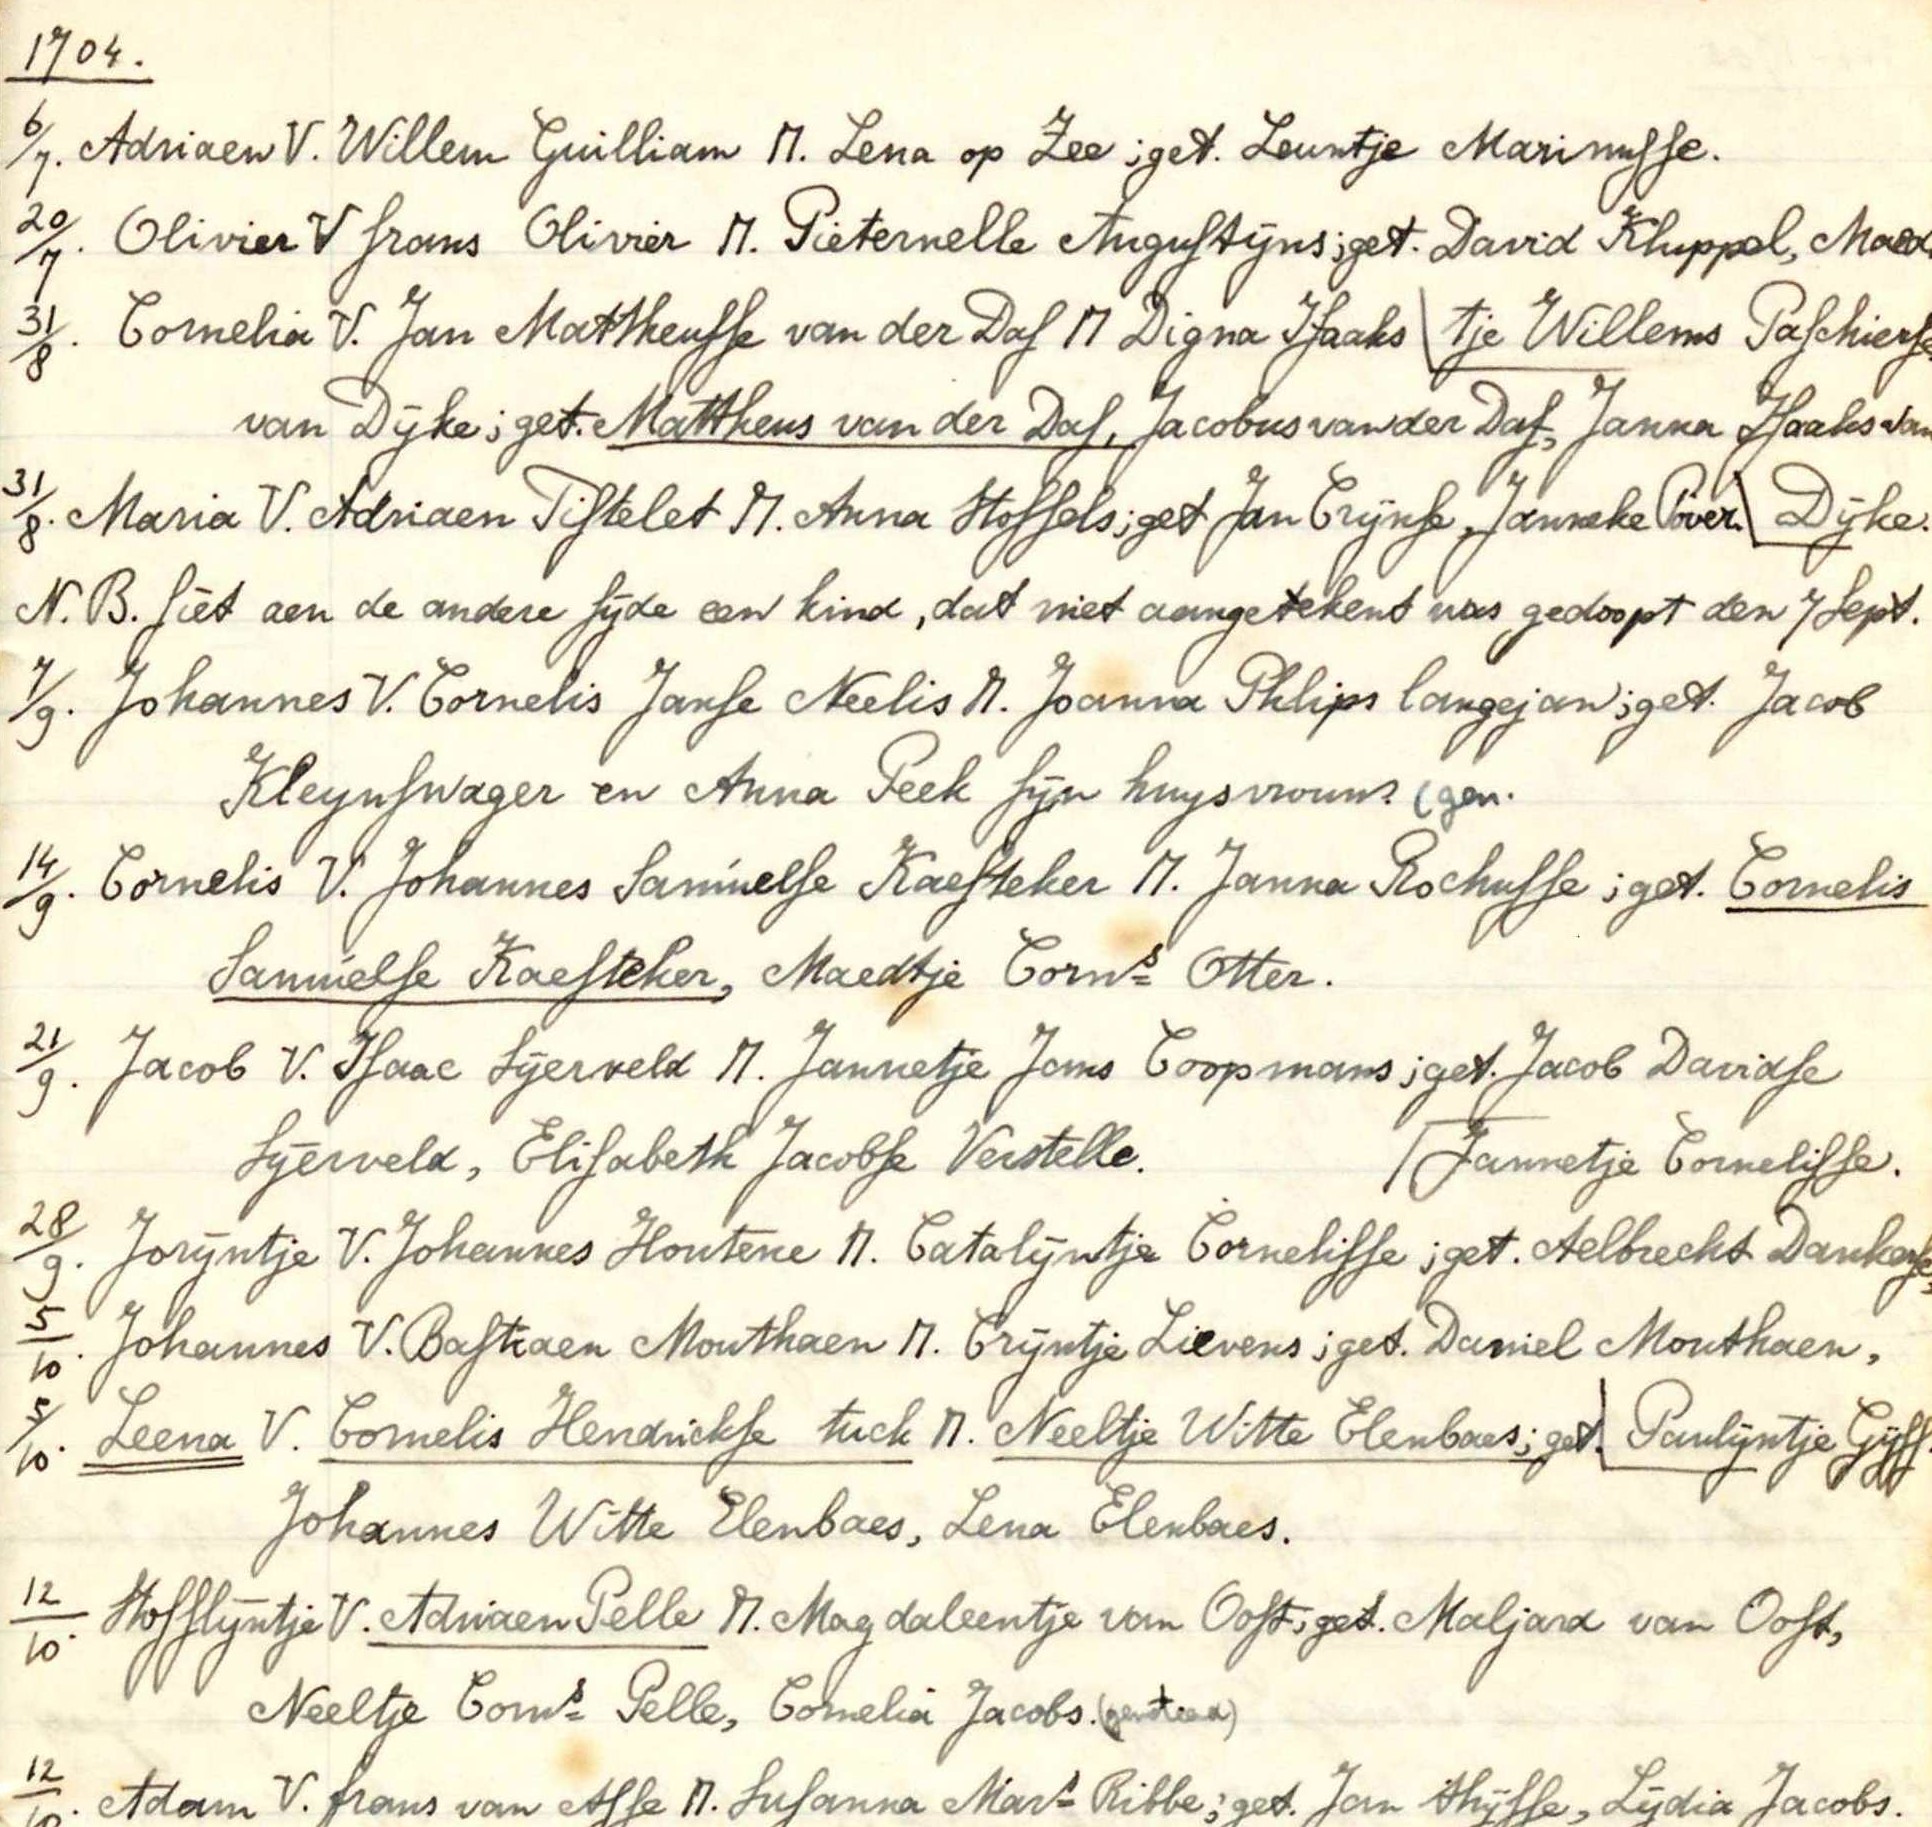 1704.
6/7. Adriaen V. Willem Guilliam M. Lena op Zee ; get. Leuntje Marinusse.
20/7. Olivier V frans Olivier M. Pieternelle Augustijns ; get. David Kluppel, Maed
31/8. Cornelia V. Jan Mattheusse van der Das M Digna Isaaks \ tje Willems Paschierse
van Dijke ; get. Mattheus van der Das, Jacobus van der Das, Janna Isaaks van
31/8. Maria V. Adriaen Tistelet M. Anna Stoffels ; get Jan Crijnse, Janneke Pover \ Dijke.
N.B. siet aen de andere sijde een kind, dat niet aangetekent was gedoopt den 7 Sept.
7/9. Johannes V. Cornelis Janse Neelis M. Joanna Phlips langejan ; get. Jacob
Kleynswager en Anna Peek sijn huysvrouw. (gen.
14/9. Cornelis V. Johannes Samuelse Kaesteker M. Janna Rochusse ; get. Cornelis
Samuelse Kaesteker, Maedtje Corns Otter.
21/9. Jacob V. Isaac Sijerveld M. Jannetje Jans Coopmans ; get. Jacob Davidse
Sijerveld, Elisabeth Jacobse Verstelle. / Jannetje Cornelisse.
28/9. Jorijntje V. Johannes Houtene M. Catalijntje Cornelisse ; get. Aelbrecht Dankerse,
5/10. Johannes V. Bastiaen Mouthaen M. Crijntje Lievens ; get. Daniel Mouthaen,
5/10. Leena V. Cornelis Hendrickse tuck M. Neeltje Witte Elenbaes ; get. \ Paulijntje Gijss.
Johannes Witte Elenbaes, Lena Elenbaes.
12/10. Stofflijntje V. Adriaen Pelle M. Magdaleentje van Oost ; get. Maljard van Oost,
Neeltje Corns Pelle, Cornelia Jacobs.
12/10. Adam V. frans van Asse M. Susanna Mars Ribbe ; get. Jan thijsse, Lydia Jacobs.